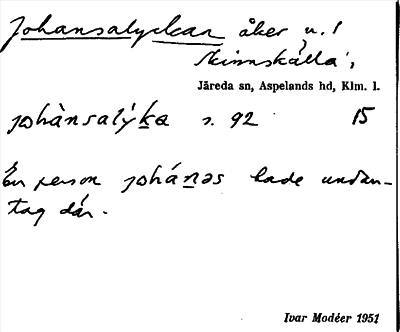 Johansalyckan åker n. 1
Skinnskälla,
Järeda sn, Aspelands hd, Klm. l.
johànsalýka s. 92 15
En person johánəs hade undan-
tag där.
Ivar Modéer 1951